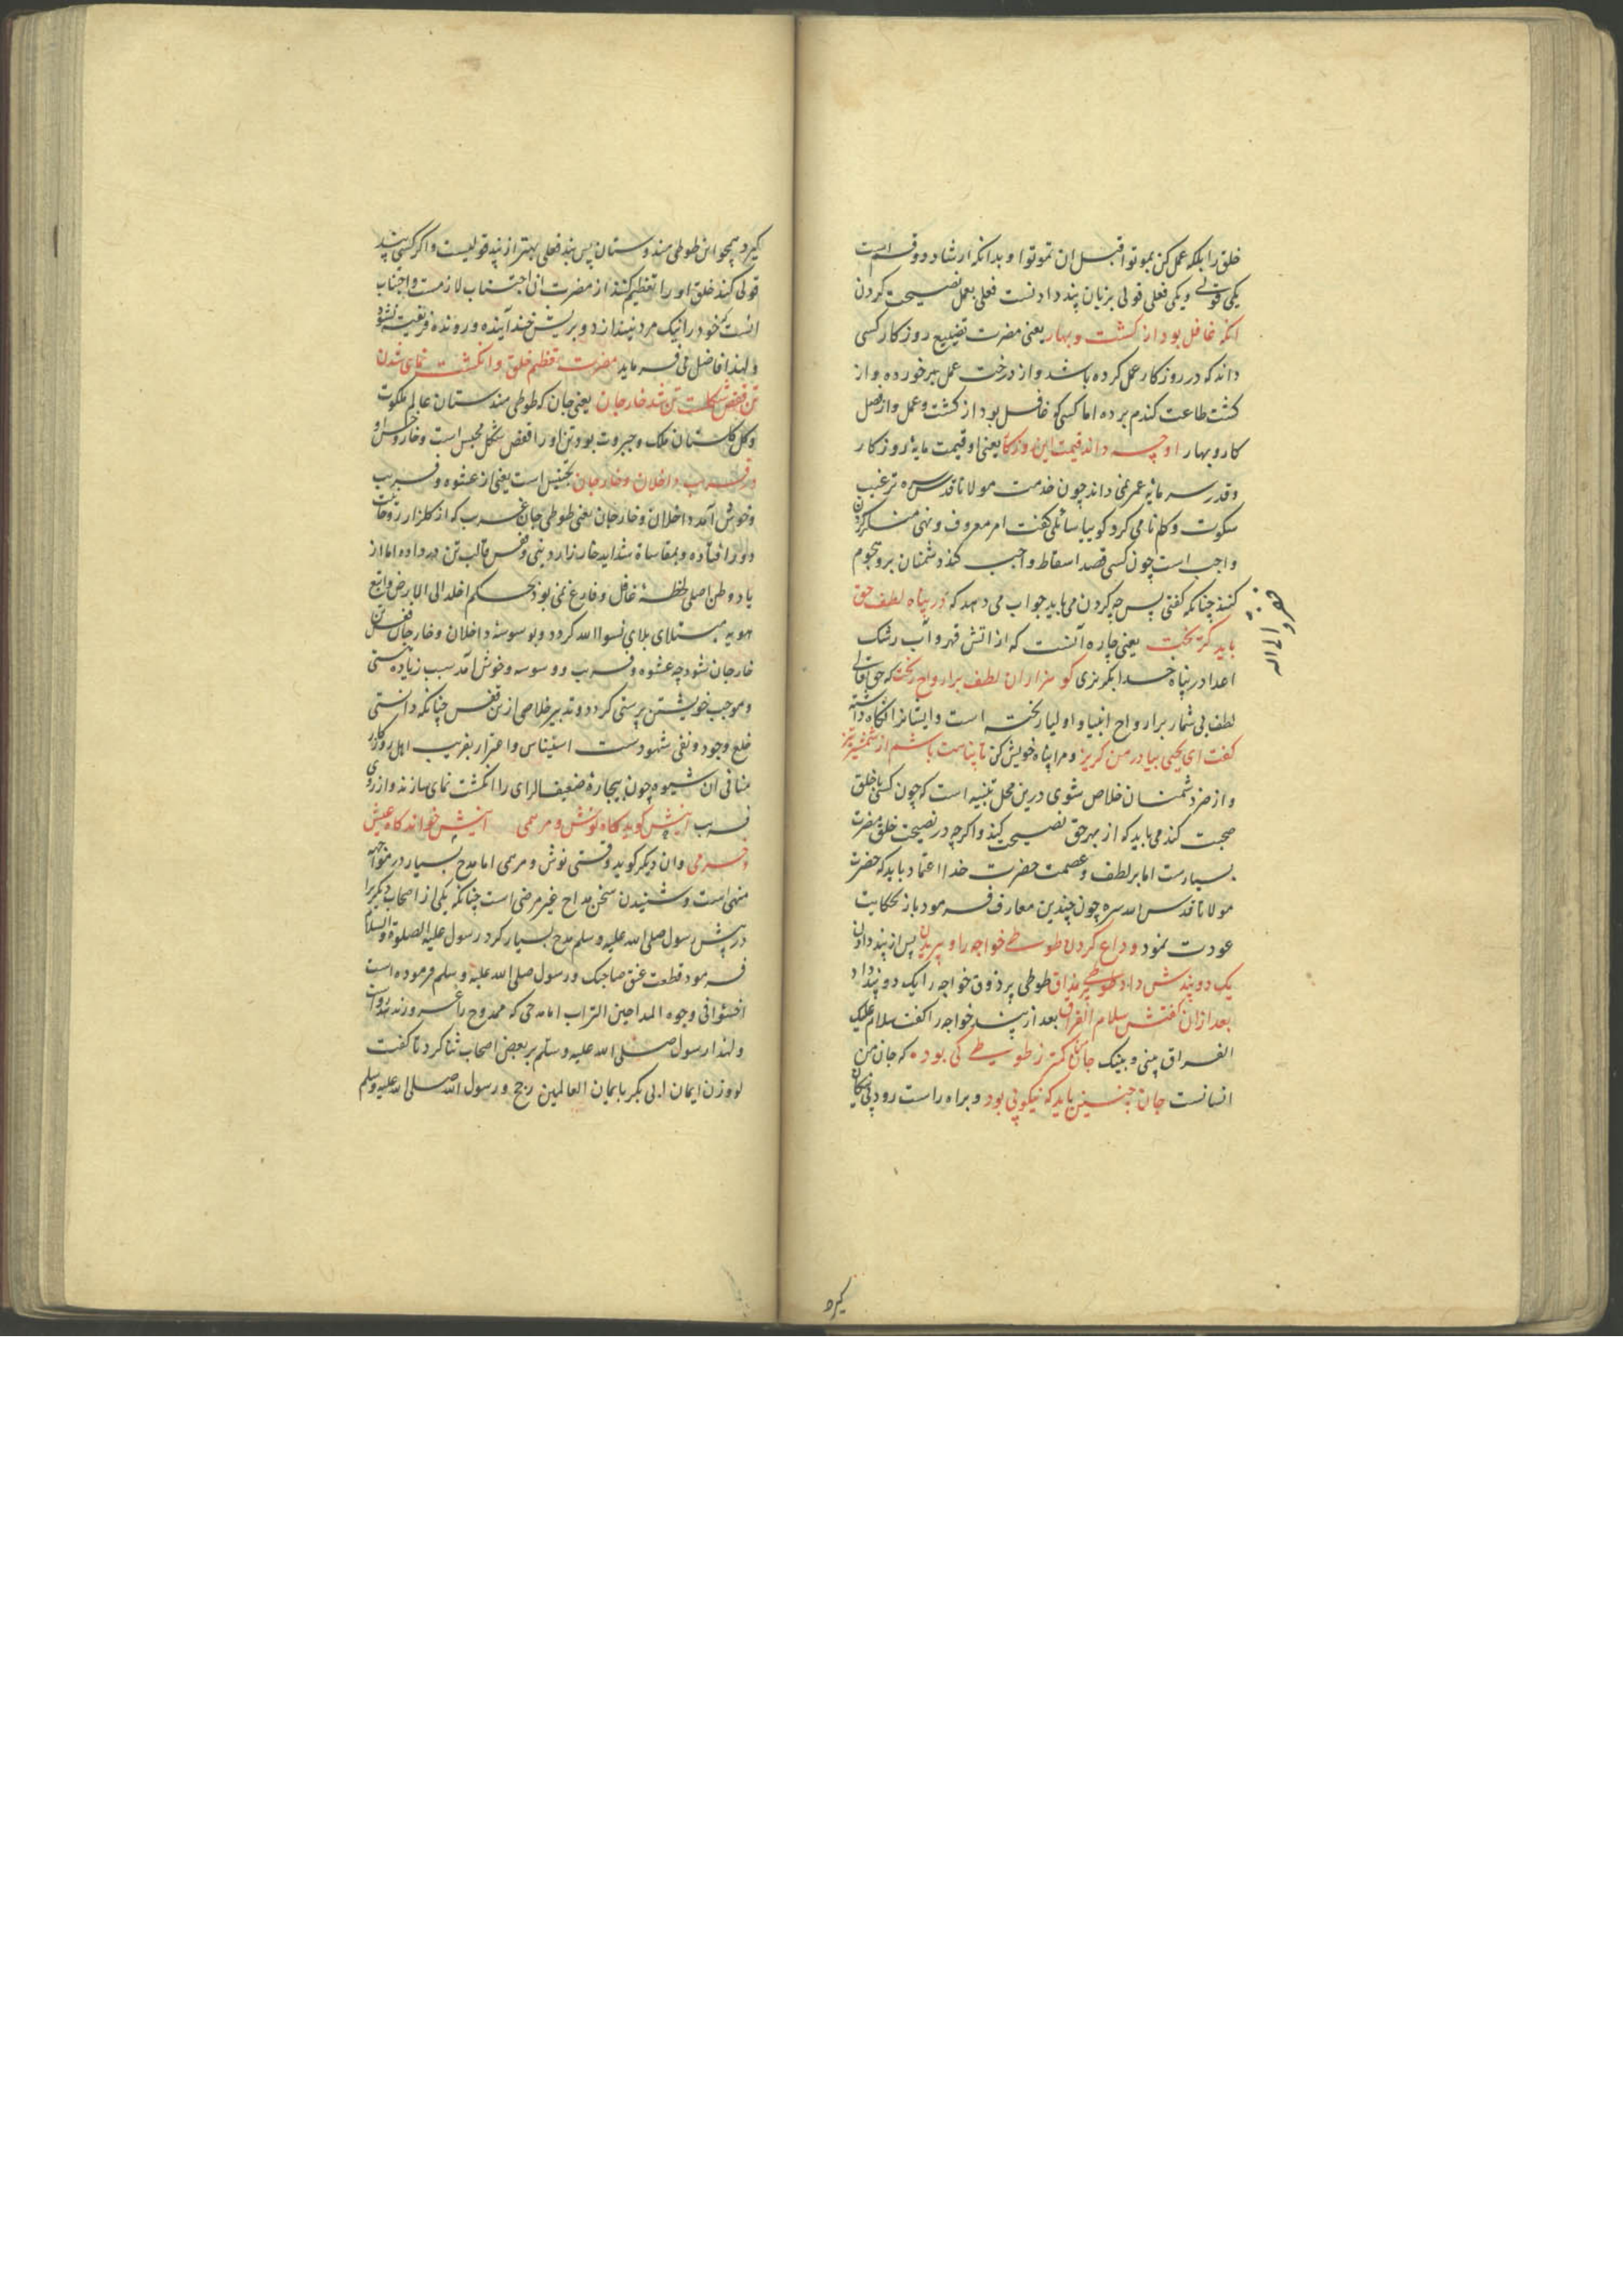 خلق را بلکه عمل کن بموتوا قبل ان تموتوا و بدانکه ارشاد دو قسم است
یکی قولی و یکی فعلی قولی بزبان پند دادنست فعلی بعمل نصیحت کردن
انکه غافل بود از کشت و بهار یعنی مضرت تضییع روزکار کسی
داند که در روزکار عمل کرده باشد و از درخت عمل بر خورده و از
کشت طاعت کندم برده اما کسی کو غافل بود از کشت و عمل و از فصل
کار و بهار او چه داند قیمت این روزکار یعنی او قیمت مایه روزکار
و قدر سرمایه عمر نمی داند چون خدمت مولانا قدس سره ترغیب
سکوت و کم نامی کرد کوییا سائلی کفت امر معروف و نهی منکر کردن
واجب است چون کسی قصد اسقاط واجب کند دشمنان برو هجوم
کنند چنانکه کفتی پس چه کردن می باید جواب می دهد که در پناه لطف حق
باید کریخت یعنی چاره آنست که از اتش قهر و آب رشک
اعدا در پناه خدا بکریزی کو هزاران لطف بر ارواح ریخت که حق تعالی
لطف بی شمار بر ارواح انبیا و اولیا ریخته است و ایشانرا نکاه داشته
کفت ای یحیی بیا در من کریز و مرا پناه خویش کن تا پناهت باشم از شمشیر تیز
و از ضر دشمنان خلاص شوی درین محل تنبیه است که چون کسی با خلق
صحبت کند می باید که از بهر حق نصیحت کند و اکرچه در نصیحت خلق مضرت
بسیارست اما بر لطف و عصمت حضرت خدا اعتماد باید که حضرت
مولانا قدس الله سره چون چندین معارف فرمود باز بحکایت
عودت نمود وداع کردن طوطی خواجه را و پریدن پس از پند دادن
یک دو پندش داد طوطی پر مذاق طوطی پر ذوق خواجه را یک دو پند داد
بعد ازان کفتش سلام الفراق بعد از پند خواجه را کفت سلام علیک
الفراق بینی و بینک جان من کمتر ز طوطی کی بود که جان من
انسانست جان چنین باید که نیکو پی بود و براه راست رود پی نیکان
کیرد
کیرد همچو این طوطی هندوستان پس پند فعلی بهتر از پند قولیست و اکر کسی پند
قولی کند خلق او را تعظیم کنند از مضرت ان اجتناب لازمست و اجتناب
انست که خود را نیک مرد نپندارد و بریش خند آینده و رونده فریفته نشود
و لهذا فاضل می فرماید مضرت تعظیم خلق و انکشت نمای شدن
تن قفص شکلست تن شد خار جان یعنی جان که طوطی هندستان عالم ملکوت
و کل کلستان ملک و جبروت بود تن او را قفص شکل محبس است و خار و خس او
در فریب داخلان و خارجان تجنیس است یعنی از عشوه و فریب
و خوش آمد داخلان و خارجان یعنی طوطی جان غریب که از کلزار روحانیت
دور افتاده و بمقاساة شداید خارزار دنیی و قفس قالب تن در داده اما از
یاد وطن اصلی لحظه غافل و فارغ نمی بود بحکم اخلد الی الارض واتبع
هویه مبتلای بلای نسوا الله کردد و بوسوسه داخلان و خارجان قفس تن
خار جان شود چه عشوه و فریب و وسوسه و خوش آمد سبب زیاده مستی
و موجب خویشتن پرستی کردد و تدبیر خلاصی از تن قفس چنانکه دانستی
خلع وجود و نفی شهودست استیناس و اغترار بفریب اهل روزکار
منافی ان شیوه چون بیچاره ضعیف الرای را انکشت نمای سازند و از روی
فریب اینش کوید کاه نوش و مرهمی آنیش خواند کاه عیش
و خرمی و ان دیکر کوید وقتی نوش و مرهمی اما مدح بسیار در مواجهه
منهی است و شنیدن سخن مداح غیر مرضی است چنانکه یکی از اصحاب دیکریرا
در پیش رسول صلی الله علیه و سلم مدح بسیار کرد رسول علیه الصلوة والسلام
فرمود قطعت عنق صاحبک و رسول صلی الله علیه و سلم فرموده است
احثوا فی وجوه المداحین التراب اما مدحی که ممدوح را غره نسازد رواست
و لهذا رسول صلی الله علیه و سلم بر بعض اصحاب ثنا کرد تا کفت
لو وزن ایمان ابی بکر بایمان العالمین رجح و رسول الله صلی الله علیه و سلم